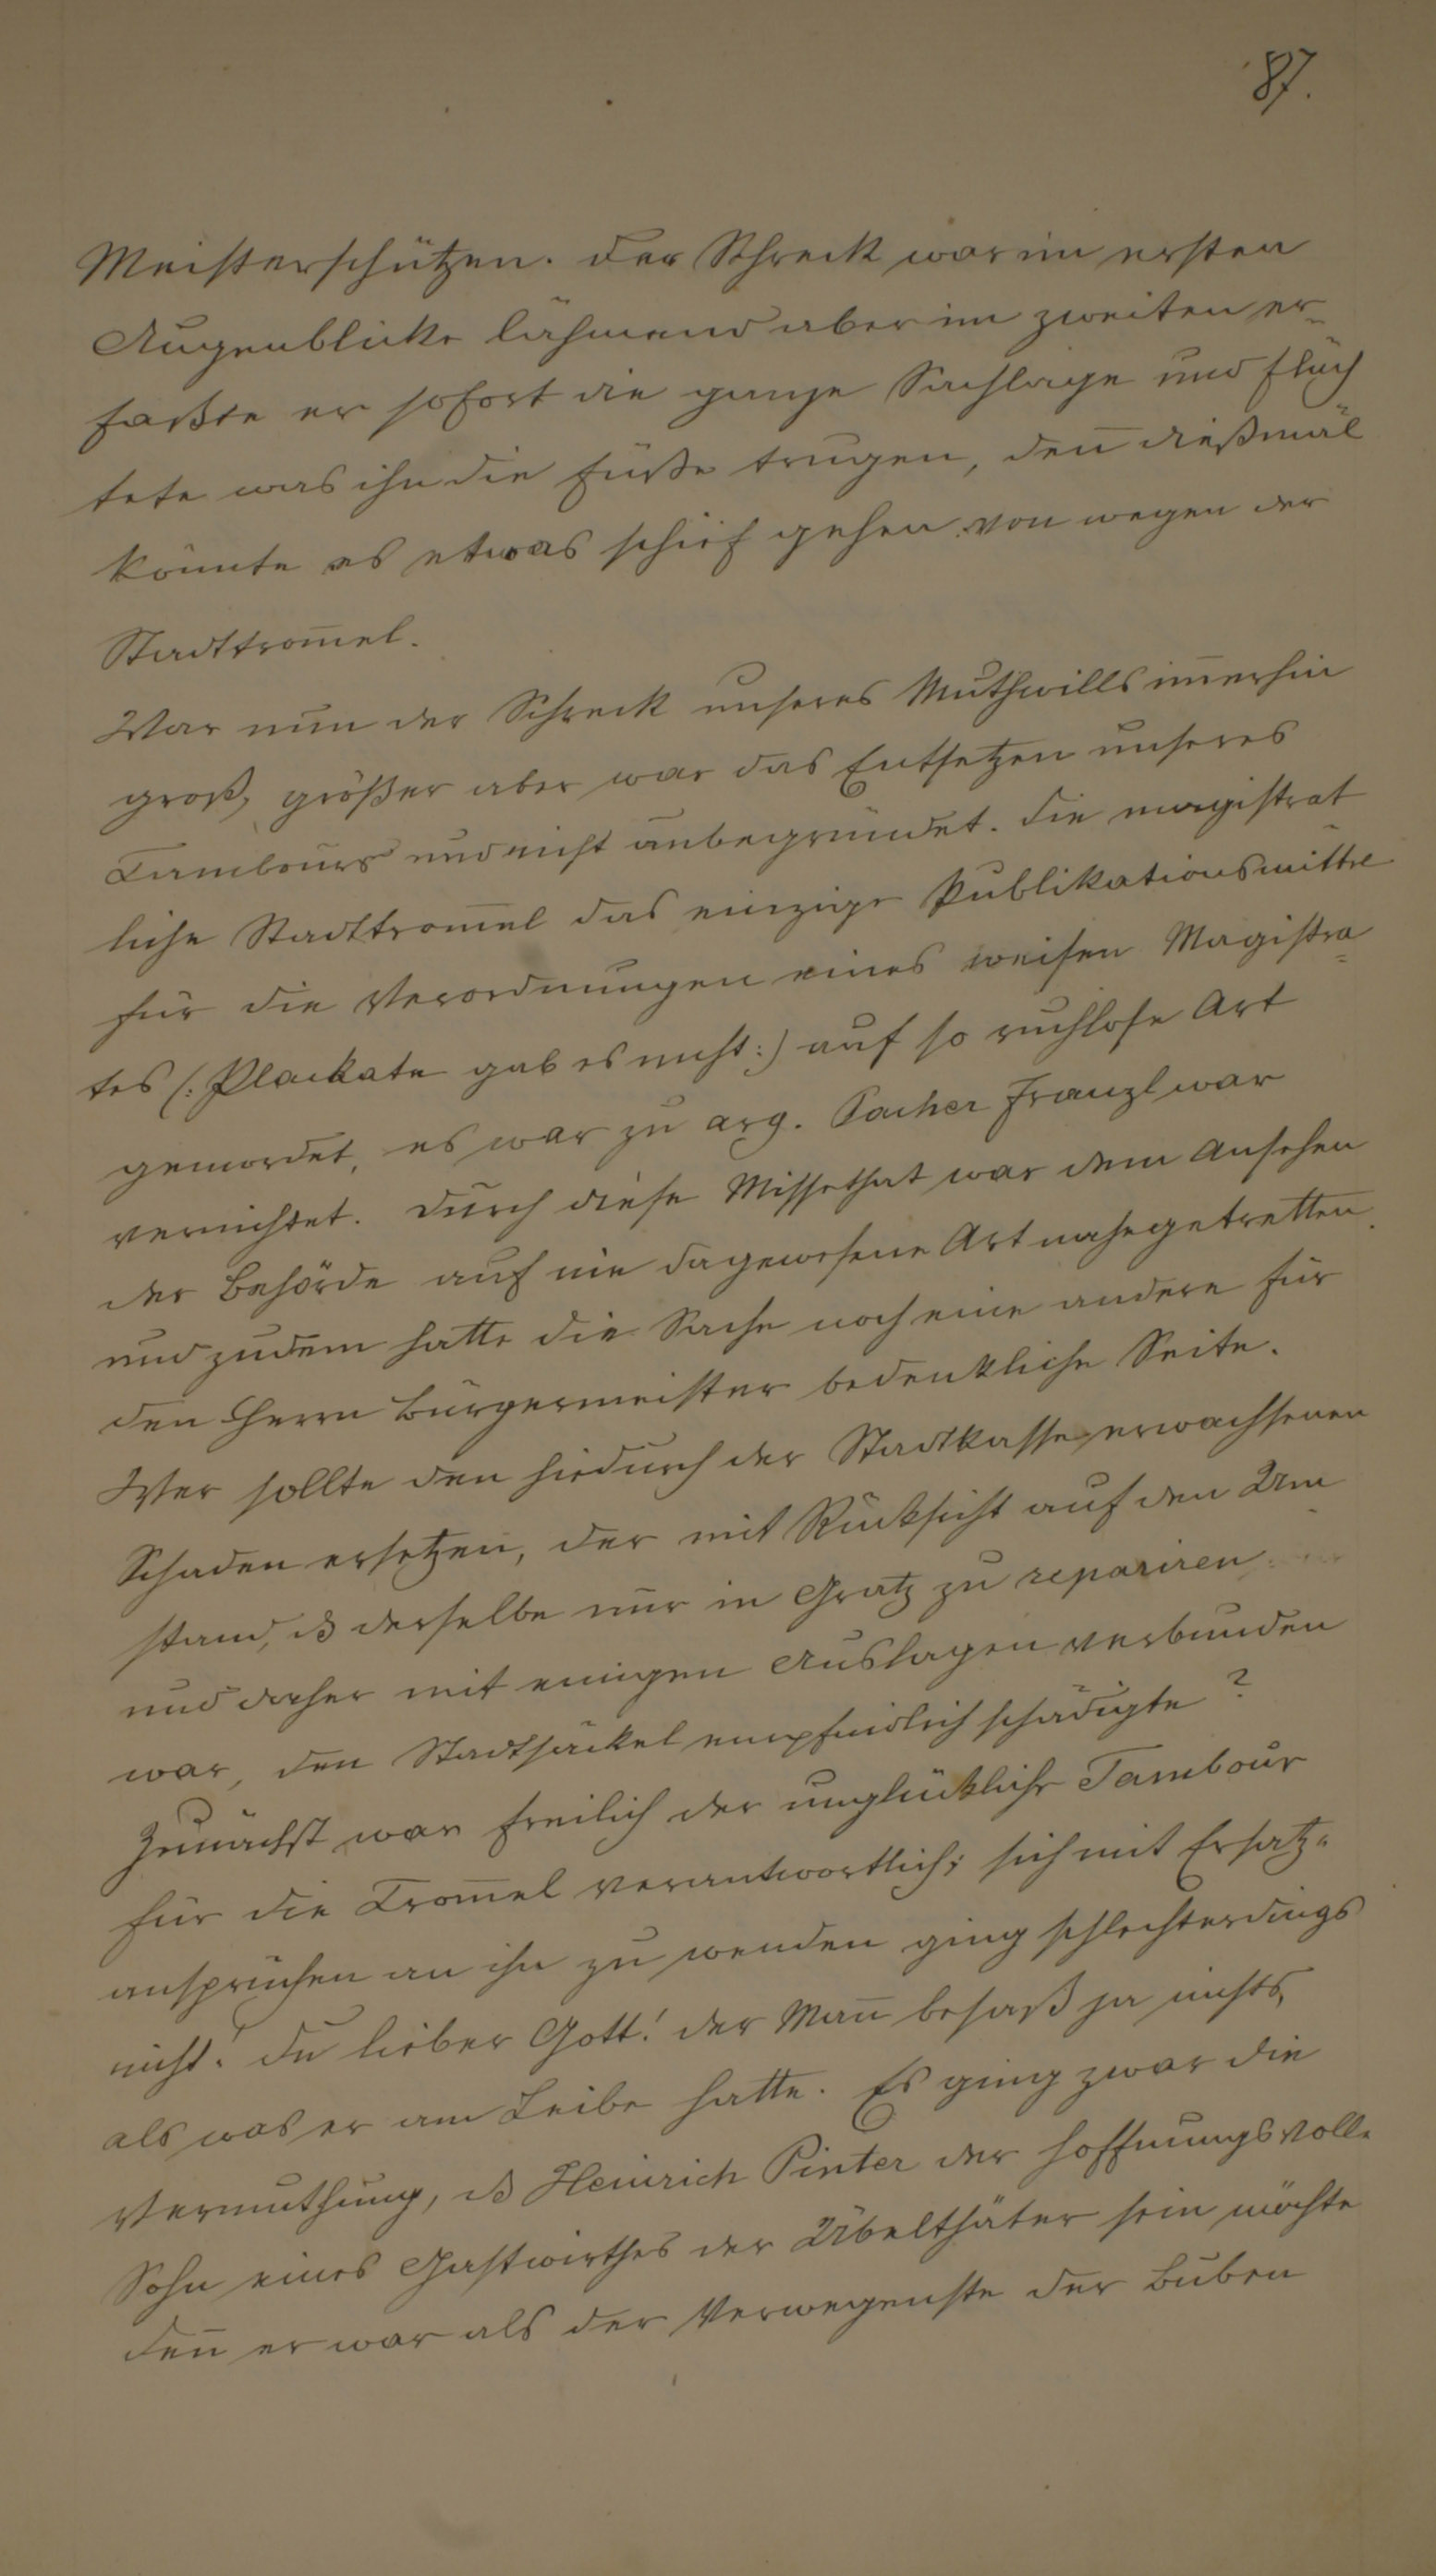 87.
Meisterschützen. Der Schreck war im ersten
Augenblicke lähmend aber im zweiten er¬
faßte er sofort die ganze Sachlage und flüch
tete was ihn die Füße trugen, den̄ dießmal
könnte es etwas schief gehen von wegen der
Stadttrom̄el.
War nun der Schreck unseres Muthwills im̄erhin
groß, größer aber war das Entsetzen unseres
Tambours und nicht unbegründet. Die magistrat
liche Stadttrom̄el das einzige Publikationsmittel
für die Verordnungen eines weisen Magistra¬
tes (: Plackate gab es nicht :) auf so ruchlose Art
gemordet, es war zu arg. Pacher Franzl war
vernichtet. Durch diese Missethat war dem Ansehen
der Behörde auf nie dagewesene Art nahegetretten
und zudem hatte die Sache noch eine andere für
den Herrn Bürgermeister bedenkliche Seite.
Wer sollte den hiedurch der Stadtkasse erwachsenen
Schaden ersetzen, der mit Rücksicht auf den Um
stand, ß derselbe nur in Gratz zu repariren
und daher mit einigen Auslagen verbunden
war, den Stadtsäckel empfindlich schädigte?
Zunächst war freilich der unglückliche Tambour
für die Trom̄el verantwortlich; sich mit Ersatz-
ansprüchen an ihn zu wenden ging schlechterdings
nicht. Du lieber Gott! der Man̄ besaß ja nichts,
als was er am Leibe hatte. Es ging zwar die
Vermuthung, ß Heinrich Pinter der hoffnungsvolle
Sohn eines Gastwirthes der Übelthäter sein möchte
den̄ er war als der Verwegenste der Buben